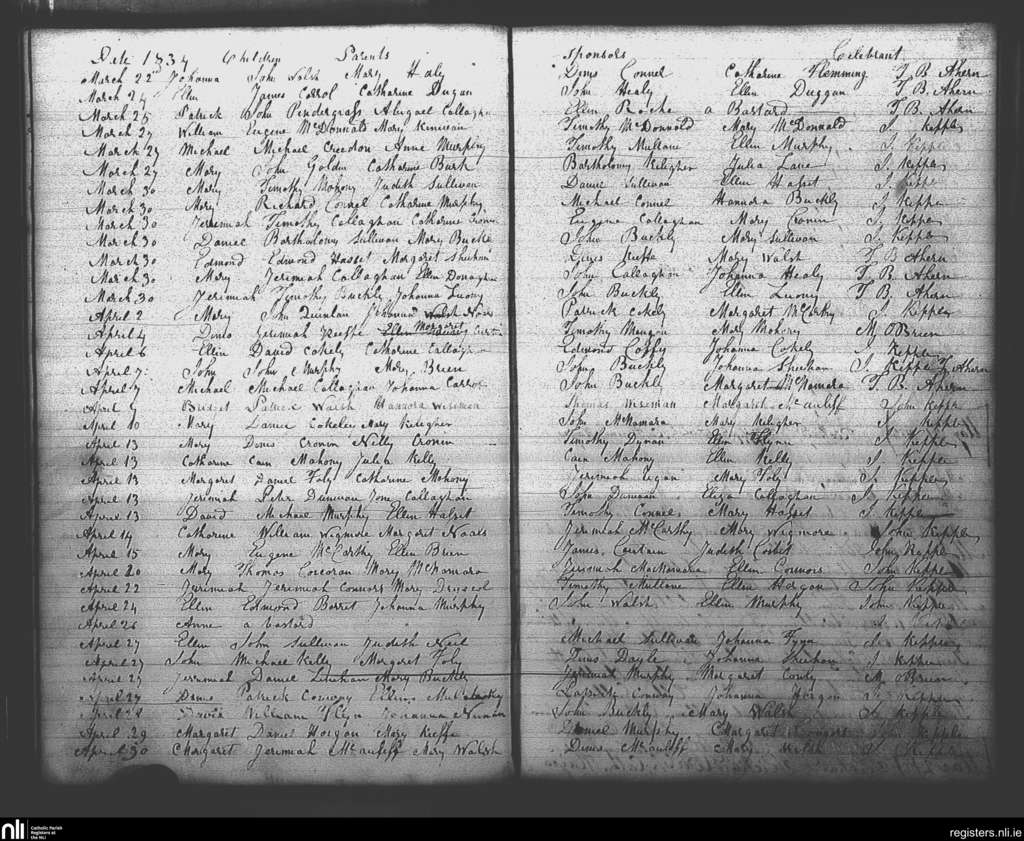 Date 1834 Children Parents Sponsors Celebrant
March 22nd Johanna John Walsh Mary Healy Denis Connel Catharine Flemming T. B. Ahern
March 24 Ellen James Carrol Catharine Dugan John Healy Ellen Duggan T. B. Ahern
March 25 Patrick John Pendergrass Abigael Callaghan Ellen Roche a Bastard T. B. Ahern
March 27 William Eugene McDonnald Mary Timothy McDonnold Mary McDonnald J. Kepple
March 27 Michael Michael Creedon Anne Murphy Timothy Mullane Ellen Murphy J. Kepple
March 27 Mary John Goldin Catharine Burk Bartholomy Keligher Julia Lane J. Kepple
March 30 Mary Timothy Mahony Judith Sullivan Daniel Sullivan Ellen Hasset J. Kepple
March 30 Mary Richard Connel Catharine Murphy Michael Connel Hannora Buckly J. Kepple
March 30 Jerremiah Timothy Callaghan Catharine Cronin Eugene Callaghan Mary Cronin J. Kepple
March 30 Daniel Bartholomy Sullivan Mary Buckle John Buckly Mary Sullivan J. Kepple
March 30 Edmond Edmond Hasset Margaret Sheehan Keeffe Mary Walsh T. B. Ahern
March 30 Mary Jerimiah Callaghan Ellen Donaghue John Callaghan Johanna Healy T. B. Ahern
March 30 Jerimiah Timothy Buckly Johanna Luony John Buckly Ellen Luony T. B. Ahern
April 2 Mary John Quinlan Johanna Walsh Patrick Margaret McCarthy J. Kepple
April 4 Denis Jeremiah Keeffe Margaret Timothy Mary Mahony M. OBrien
April 6 Ellen David Cokely Catharine Callaghan Edmond Coffy Johanna Cokely J. Kepple
April 7 John John Murphy Mary Brien John Buckly Johanna Sheehan J. Kepple T. Ahern
April 7 Michael Michael Callaghan Johanna Carrol John Buckly Margaret McNamara T. B. Ahern
April 9 Bridget Patrick Walsh Hannora Wiseman Thomas Wiseman Margaret McAuliff John Kepple
April 10 Mary Daniel Mary Keligher John McNamara Mary Keligher J. Kepple
April 13 Mary Denis Cronin Nelly Cronin Timothy Ellen Flynn J. Kepple
April 13 Catharine Cain Mahony Julia Kelly Cain Mahony Ellen Kelly J. Kepple
April 13 Margaret Daniel Foly Catharine Mahony Jerimiah Mary Foly J. Kepple
April 13 Jerimiah Peter Dunivan Callaghan John Dunivan Eliza Callaghan J. Kepple
April 13 David Michael Murphy Ellen Hasset Timothy Connel Mary Hasset J. Kepple
April 14 Catharine William Wigmore Margaret Noals Jerimiah McCarthy Mary Wigmore John Kepple
April 15 Mary Eugene McCarthy Ellen Brien James Courtain Judith John Kepple
April 20 Mary Thomas Corcoran Mary McNamara Jerimiah MacNamara Ellen Connors John Kepple
April 22 Jerimiah Jerimiah Connors Mary Dryscol Timothy Mullane Ellen Horgan John Kepple
April 24 Ellen Edmond Barret Johanna Murphy John Walsh Ellen Murphy John Kepple
April 26 Anne a bastard
April 27 Ellen John Sullivan Judith Neil Michael Sullivan Johanna J. Kepple
April 27 John Michael Kelly Margaret Foly Denis Doyle Johanna Sheehan J. Kepple
April 27 Jerrimiah Daniel Linehan Mary Buckly Jerimiah Murphy Margaret M. OBrien
April 27 Denis Patrick Conway Ellen Conway Johanna Horgan J. Kepple
April 28 David William Johanna John Buckly Mary Walsh J. Kepple
April 29 Margaret Daniel Horgan Mary Keeffe Daniel Murphy Margaret John Kepple
April 30 Margaret Jerimiah McAuliff Mary Walsh Denis McAuliff Mary Walsh J. Kepple
nli Catholic Parish Registers at the NLI
registers.nli.ie